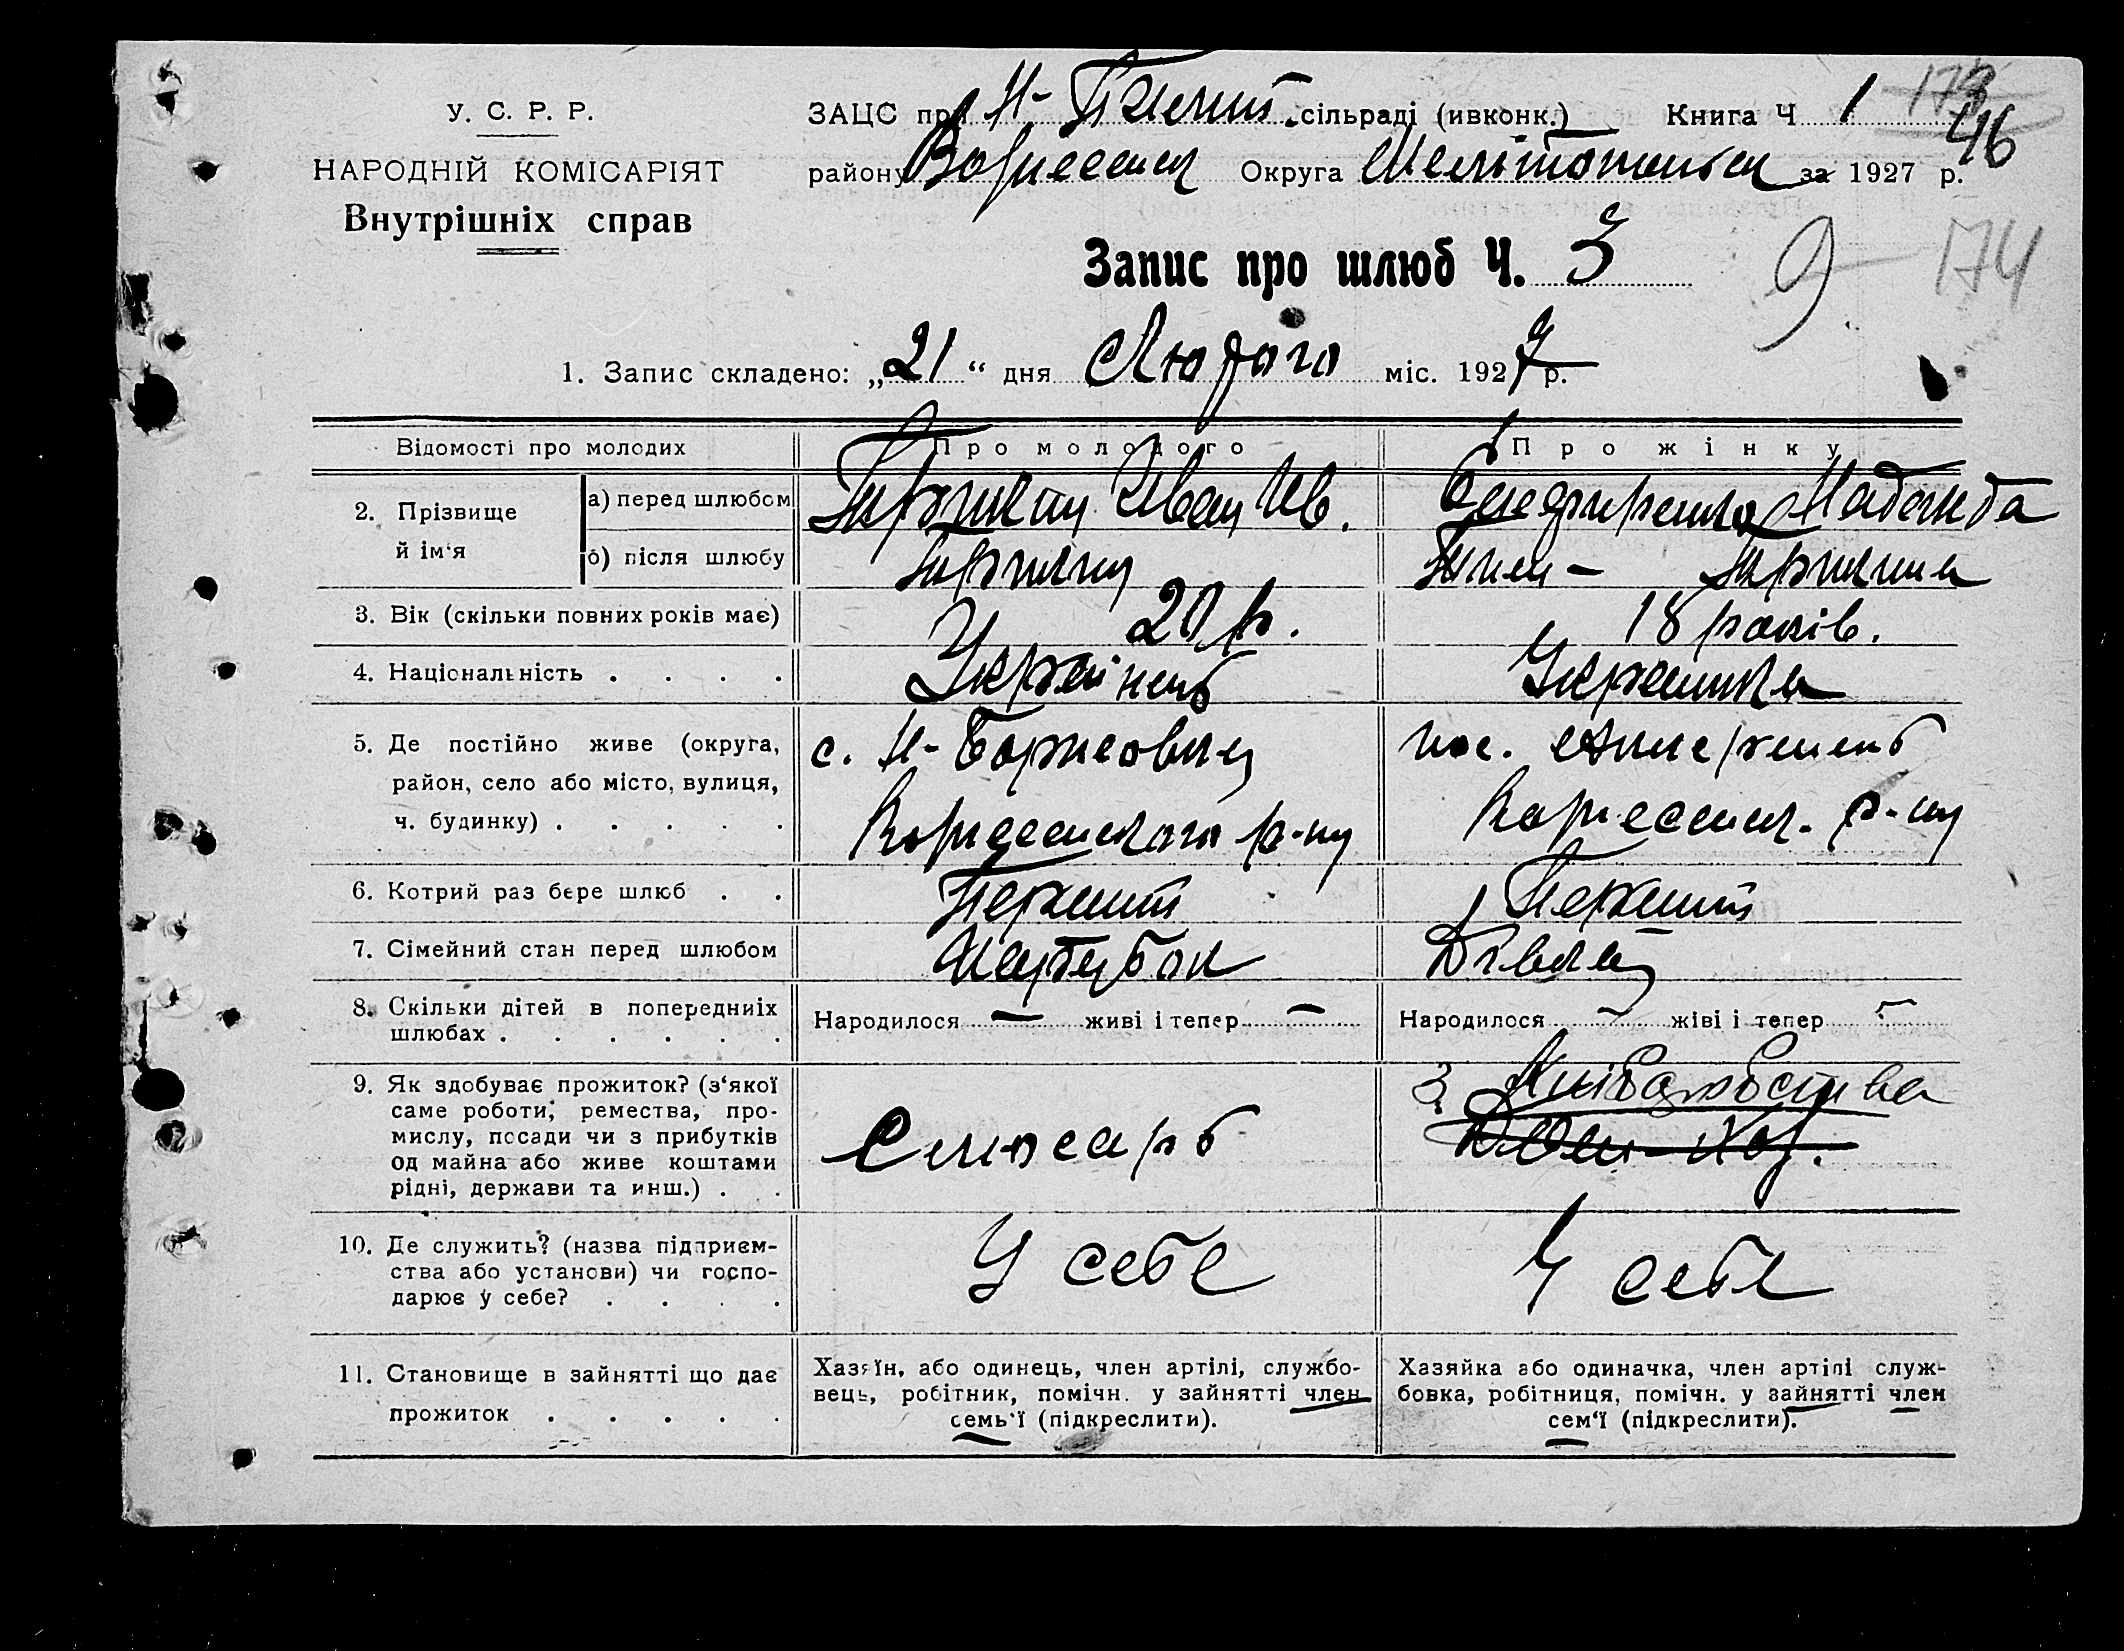 У. С. Р. Р.
НАРОДНІЙ КОМІСАРІЯТ
Внутрішніх справ
ЗАЦС при Н- сільраді (ивконк.) Книга Ч 1 46
району Вознесенск Округа Мелітопольск за 1927 р.
Запис про шлюб Ч. 3
9 174
1. Запис складено: „21“ дня Лютого міс. 1927 р.
Відомості про молодих Про молодого Про жінку
2. Прізвище й ім‘я
а) перед шлюбом Иван Ив. Надежда
б) після шлюбу
3. Вік (скільки повних років має) 20 р. 18 років.
4. Національність . . . . Українець Украинка
5. Де постійно живе (округа, с. Н- пос.
район, село або місто, вулиця, Вознесенского р-ну Вознесенск. р-ну
ч. будинку) . . . . .
6. Котрий раз бере шлюб . . Первий Первий
7. Сімейний стан перед шлюбом Парубок Дівка
8. Скільки дітей в попередниіх Народилося — живі і тепер — Народилося — жіві і тепер —
шлюбах . . . . . .
9. Як здобуває прожиток? (з‘якої З Хліборобства
саме роботи, ремества, про-
мислу, посади чи з прибутків Слюсарь
од майна або живе коштами
рідні, держави та инш.) . .
10. Де служить? (назва підприєм-
ства або установи) чи госпо- У себе У себе
дарює у себе? . . . .
11. Становище в зайнятті що дає
прожиток . . . . .
Хазяїн, або одинець, член артілі, службо-
вець, робітник, помічн. у зайнятті член
семь‘ї (підкреслити).
Хазяйка або одиначка, член артілі служ-
бовка, робітниця, помічн. у зайнятті член
сем‘ї (підкреслити).